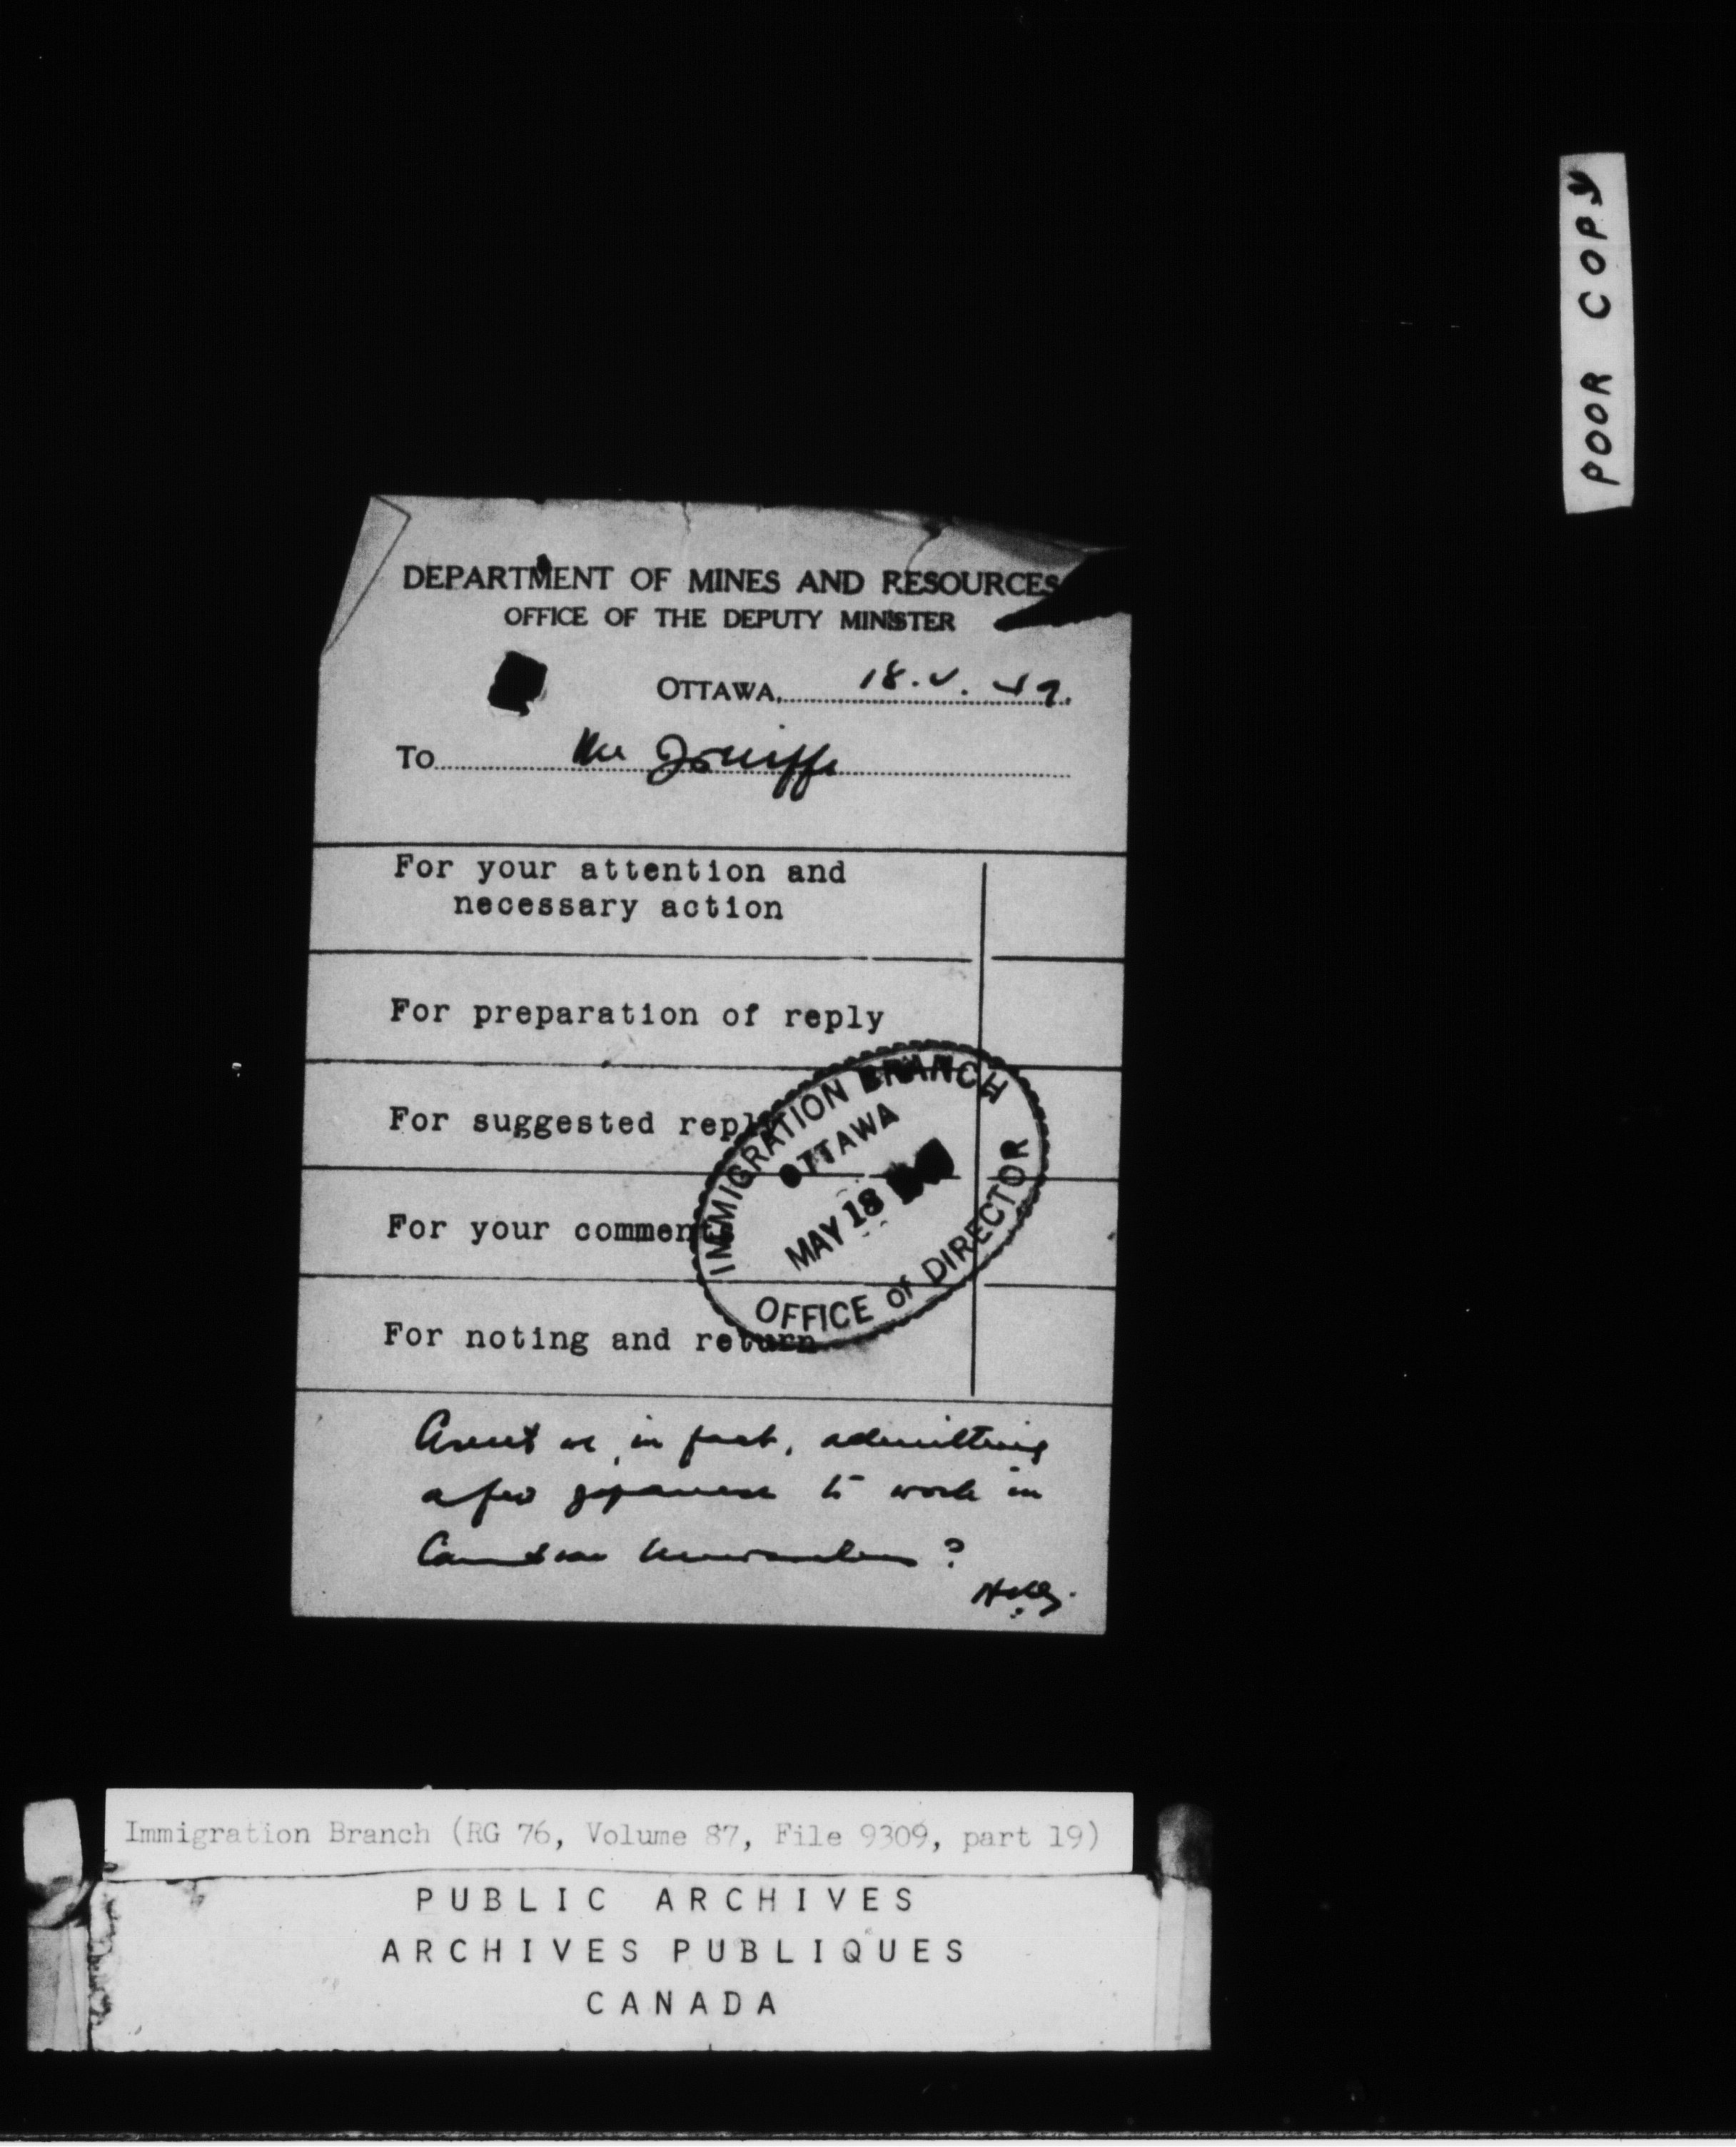 POOR COPY
DEPARTMENT OF MINES AND RESOURCES
OFFICE OF THE DEPUTY MINISTER
OTTAWA, 18.V.49.
To Mr Jolliffe
For your attention and
necessary action
For preparation of reply
For suggested reply
For your comments
For noting and return
IMMIGRATION BRANCH
OTTAWA
MAY 18
OFFICE of DIRECTOR
Aren't we, in fact, admitting
a few Japanese to work in
Canadian ?
Immigration Branch (RG 76, Volume 87, File 9309, part 19)
PUBLIC ARCHIVES
ARCHIVES PUBLIQUES
CANADA